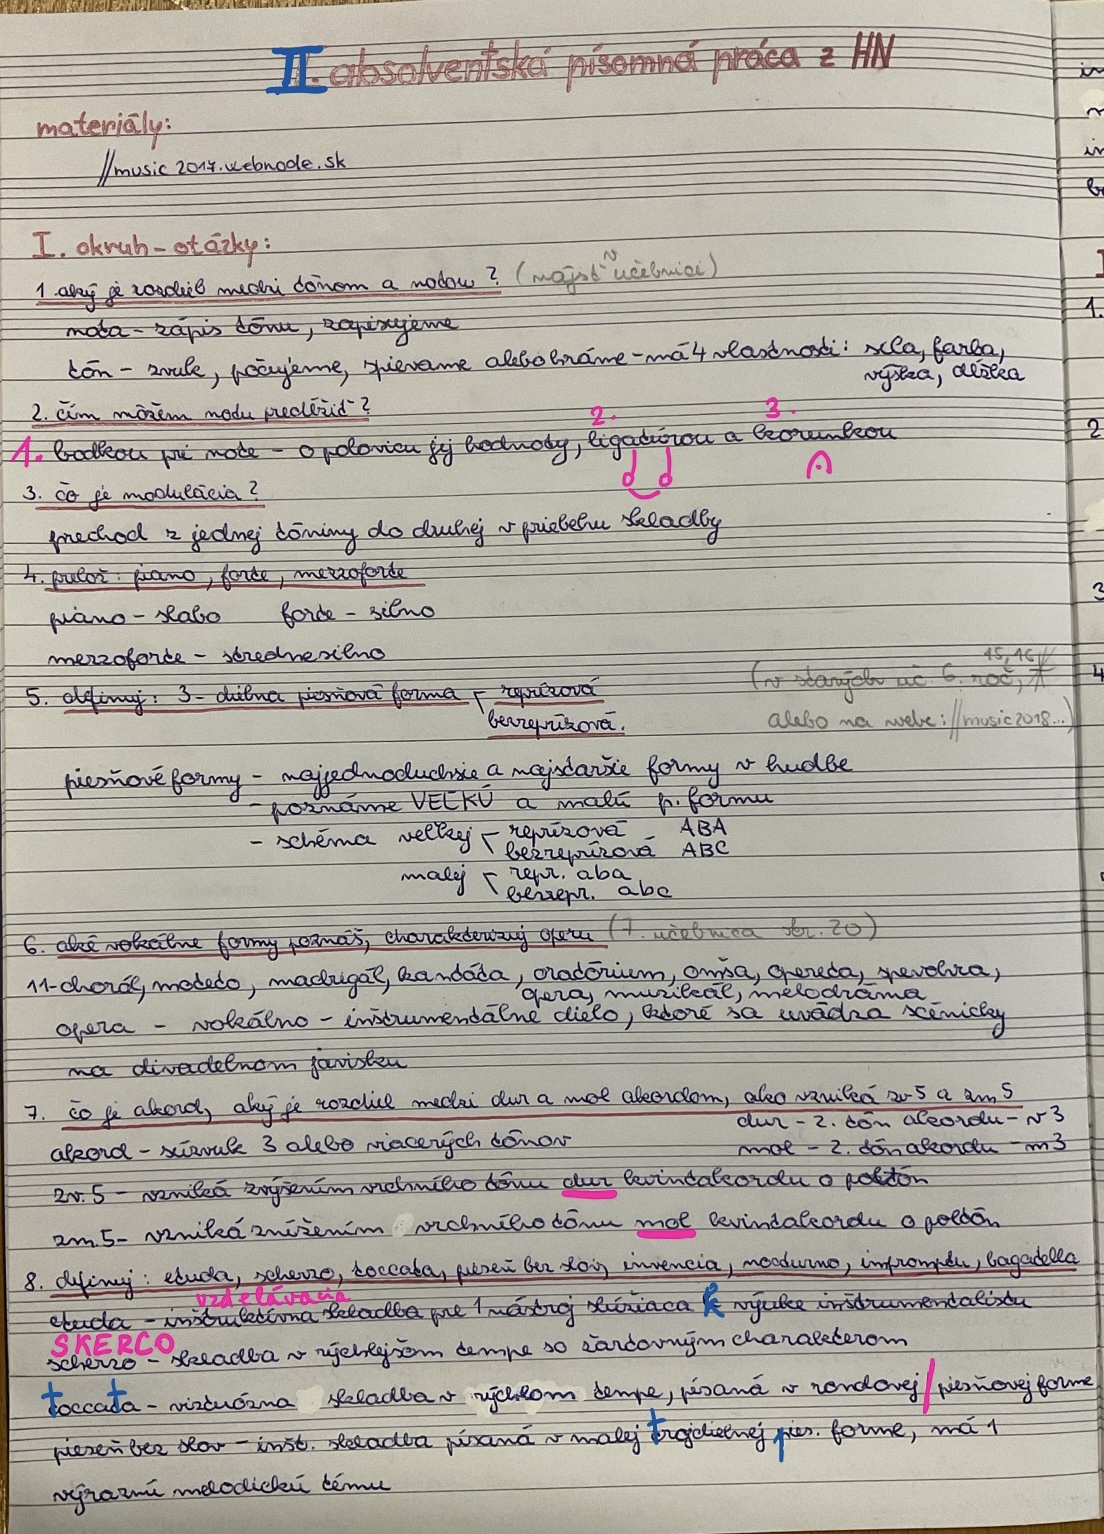 II. absolventská písomná práca z HN
materiály:
//music2017.webnode.sk
I. okruh - otázky:
1. aký je rozdiel medzi tónom a notou? (nájsť v učebnici)
nota - zápis tónu, zapisujeme
tón - zvuk, počujeme, spievame alebo hráme - má 4 vlastnosti: sila, farba,
výška, dĺžka
2. čím môžem notu predĺžiť?
1. bodkou pri note - o polovicu jej hodnoty, 2. ligatúrou a 3. korunkou
3. čo je modulácia?
prechod z jednej tóniny do druhej v priebehu skladby
4. prelož: piano, forte, mezzoforte
piano - slabo forte - silno
mezzoforte - strednesilno
5. definuj: 3-dielna piesňová forma - reprízová
bezreprízová.
(v starých uč. 6. roč, 15, 16
alebo na webe: //music2018...)
piesňové formy - najjednoduchšie a najstaršie formy v hudbe
- poznáme VEĽKÚ a malú p. formu
- schéma veľkej - reprízová ABA
bezreprízová ABC
malej - repr. aba
bezrepr. abc
6. aké vokálne formy poznáš, charakterizuj operu (7. učebnica str. 20)
11-chorál, moteto, madrigál, kantáta, oratórium, omša, opereta, spevohra,
opera, muzikál, melodráma
opera - vokálno - inštrumentálne dielo, ktoré sa uvádza scénicky
na divadelnom javisku
7. čo je akord, aký je rozdiel medzi dur a mol akordom, ako vzniká zv5 a zm5
dur - 2. tón akordu - v3
akord - súzvuk 3 alebo viacerých tónov
mol - 2. tón akordu - m3
zv. 5 - vzniká zvýšením vrchného tónu dur kvintakordu o poltón
zm. 5 - vzniká znížením vrchného tónu mol kvintakordu o poltón
8. definuj: etuda, scherzo, toccata, pieseň bez slov, invencia, nocturno, impromptu, bagatella
vzdelávacia
etuda - inštruktívna skladba pre 1 nástroj slúžiaca k výuke inštrumentalistu
SKERCO
scherzo - skladba v rýchlejšom tempe so žartovným charakterom
toccata - virtuózna skladba v rýchlom tempe, písaná v rondovej/piesňovej forme
pieseň bez slov - inšt. skladba písaná v malej trojdielnej pies. forme, má 1
výraznú melodickú tému